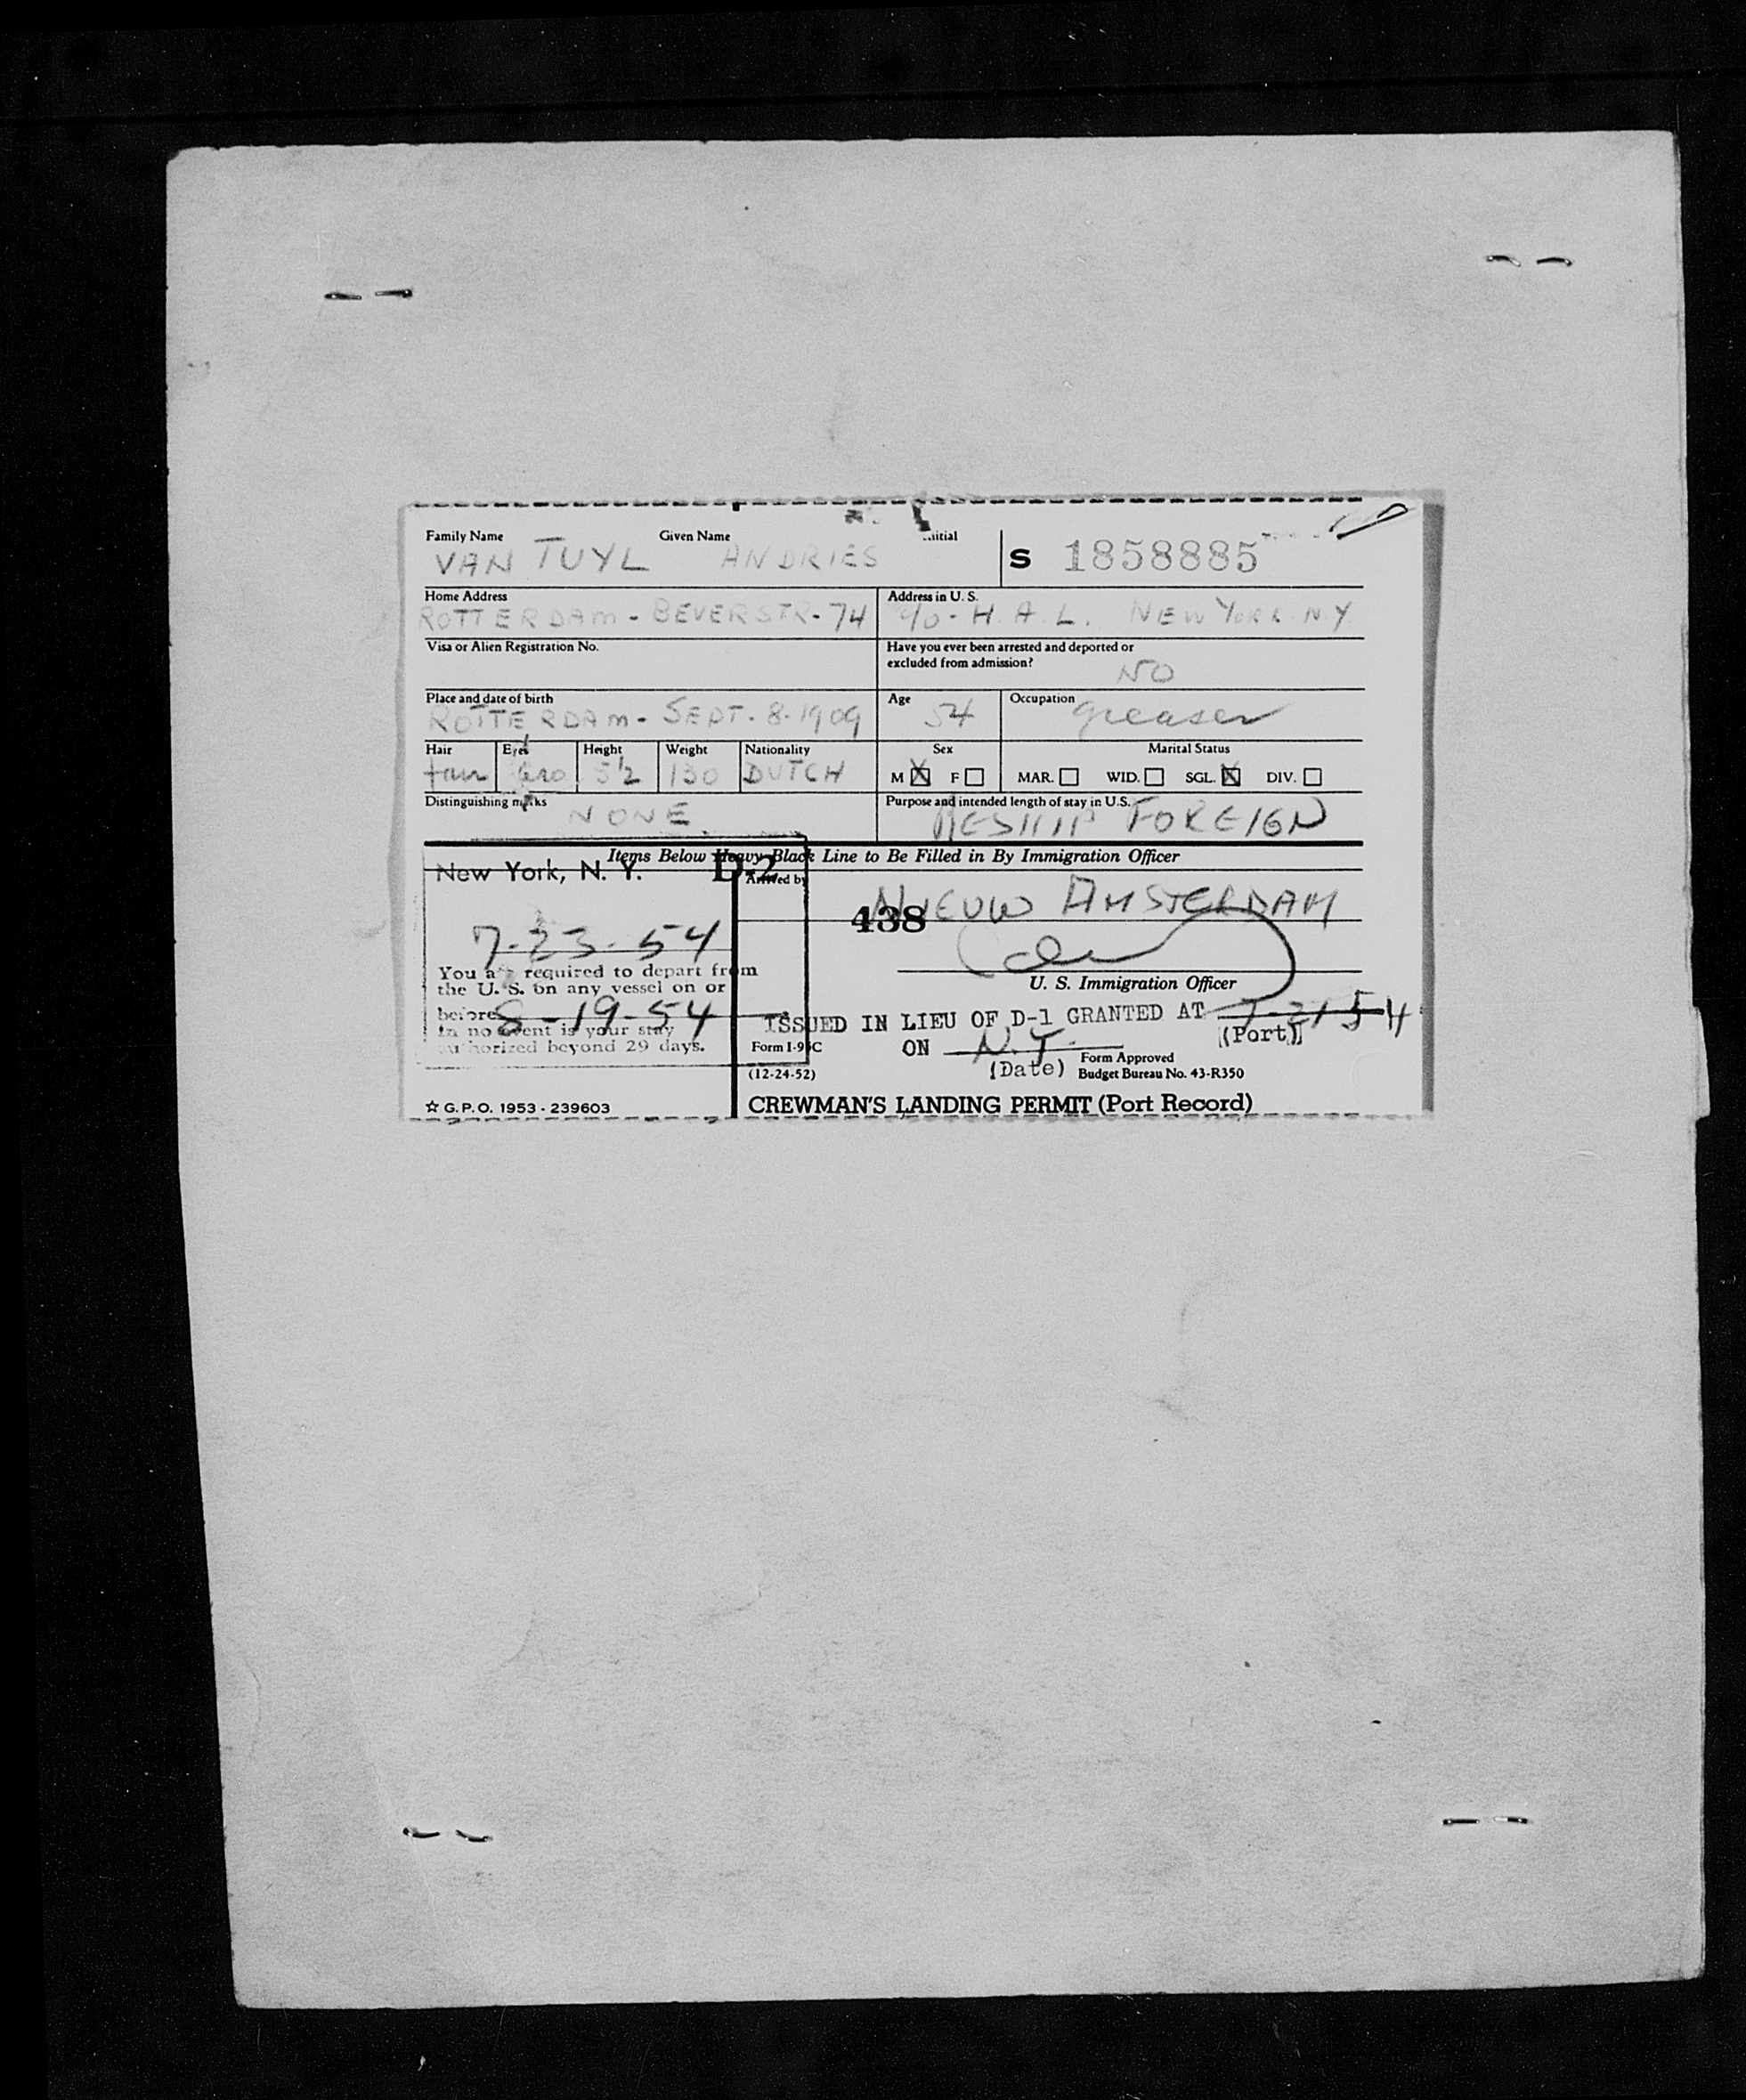 Family Name Given Name Initial
VAN TUYL ANDRIES S 1858885
Home Address Address in U. S.
ROTTERDAM - BEVERSTR - 74 c/o - H. A. L. NEW YORK NY
Visa or Alien Registration No. Have you ever been arrested and deported or
excluded from admission?
NO
Place and date of birth Age Occupation
ROTTERDAM - SEPT. 8. 1909 54 greaser
Hair Eyes Height Weight Nationality Sex Marital Status
130 DUTCH M F MAR. WID. SGL. DIV.
Distinguishing marks Purpose and intended length of stay in U.S.
NONE RESHIP FOREIGN
Items Below Heavy Black Line to Be Filled in By Immigration Officer
New York, N. Y. D-2 Arrived by
NIEUW AMSTERDAM
438
7-23-54
You are required to depart from
the U. S. on any vessel on or
before 8-19-54
In no event is your stay
authorized beyond 29 days.
U. S. Immigration Officer
ISSUED IN LIEU OF D-1 GRANTED AT 7-21 54
(Port)
Form I-95C ON N.Y.
(Date)
(12-24-52) Form Approved
Budget Bureau No. 43-R350
☆ G.P.O. 1953-239603 CREWMAN'S LANDING PERMIT (Port Record)